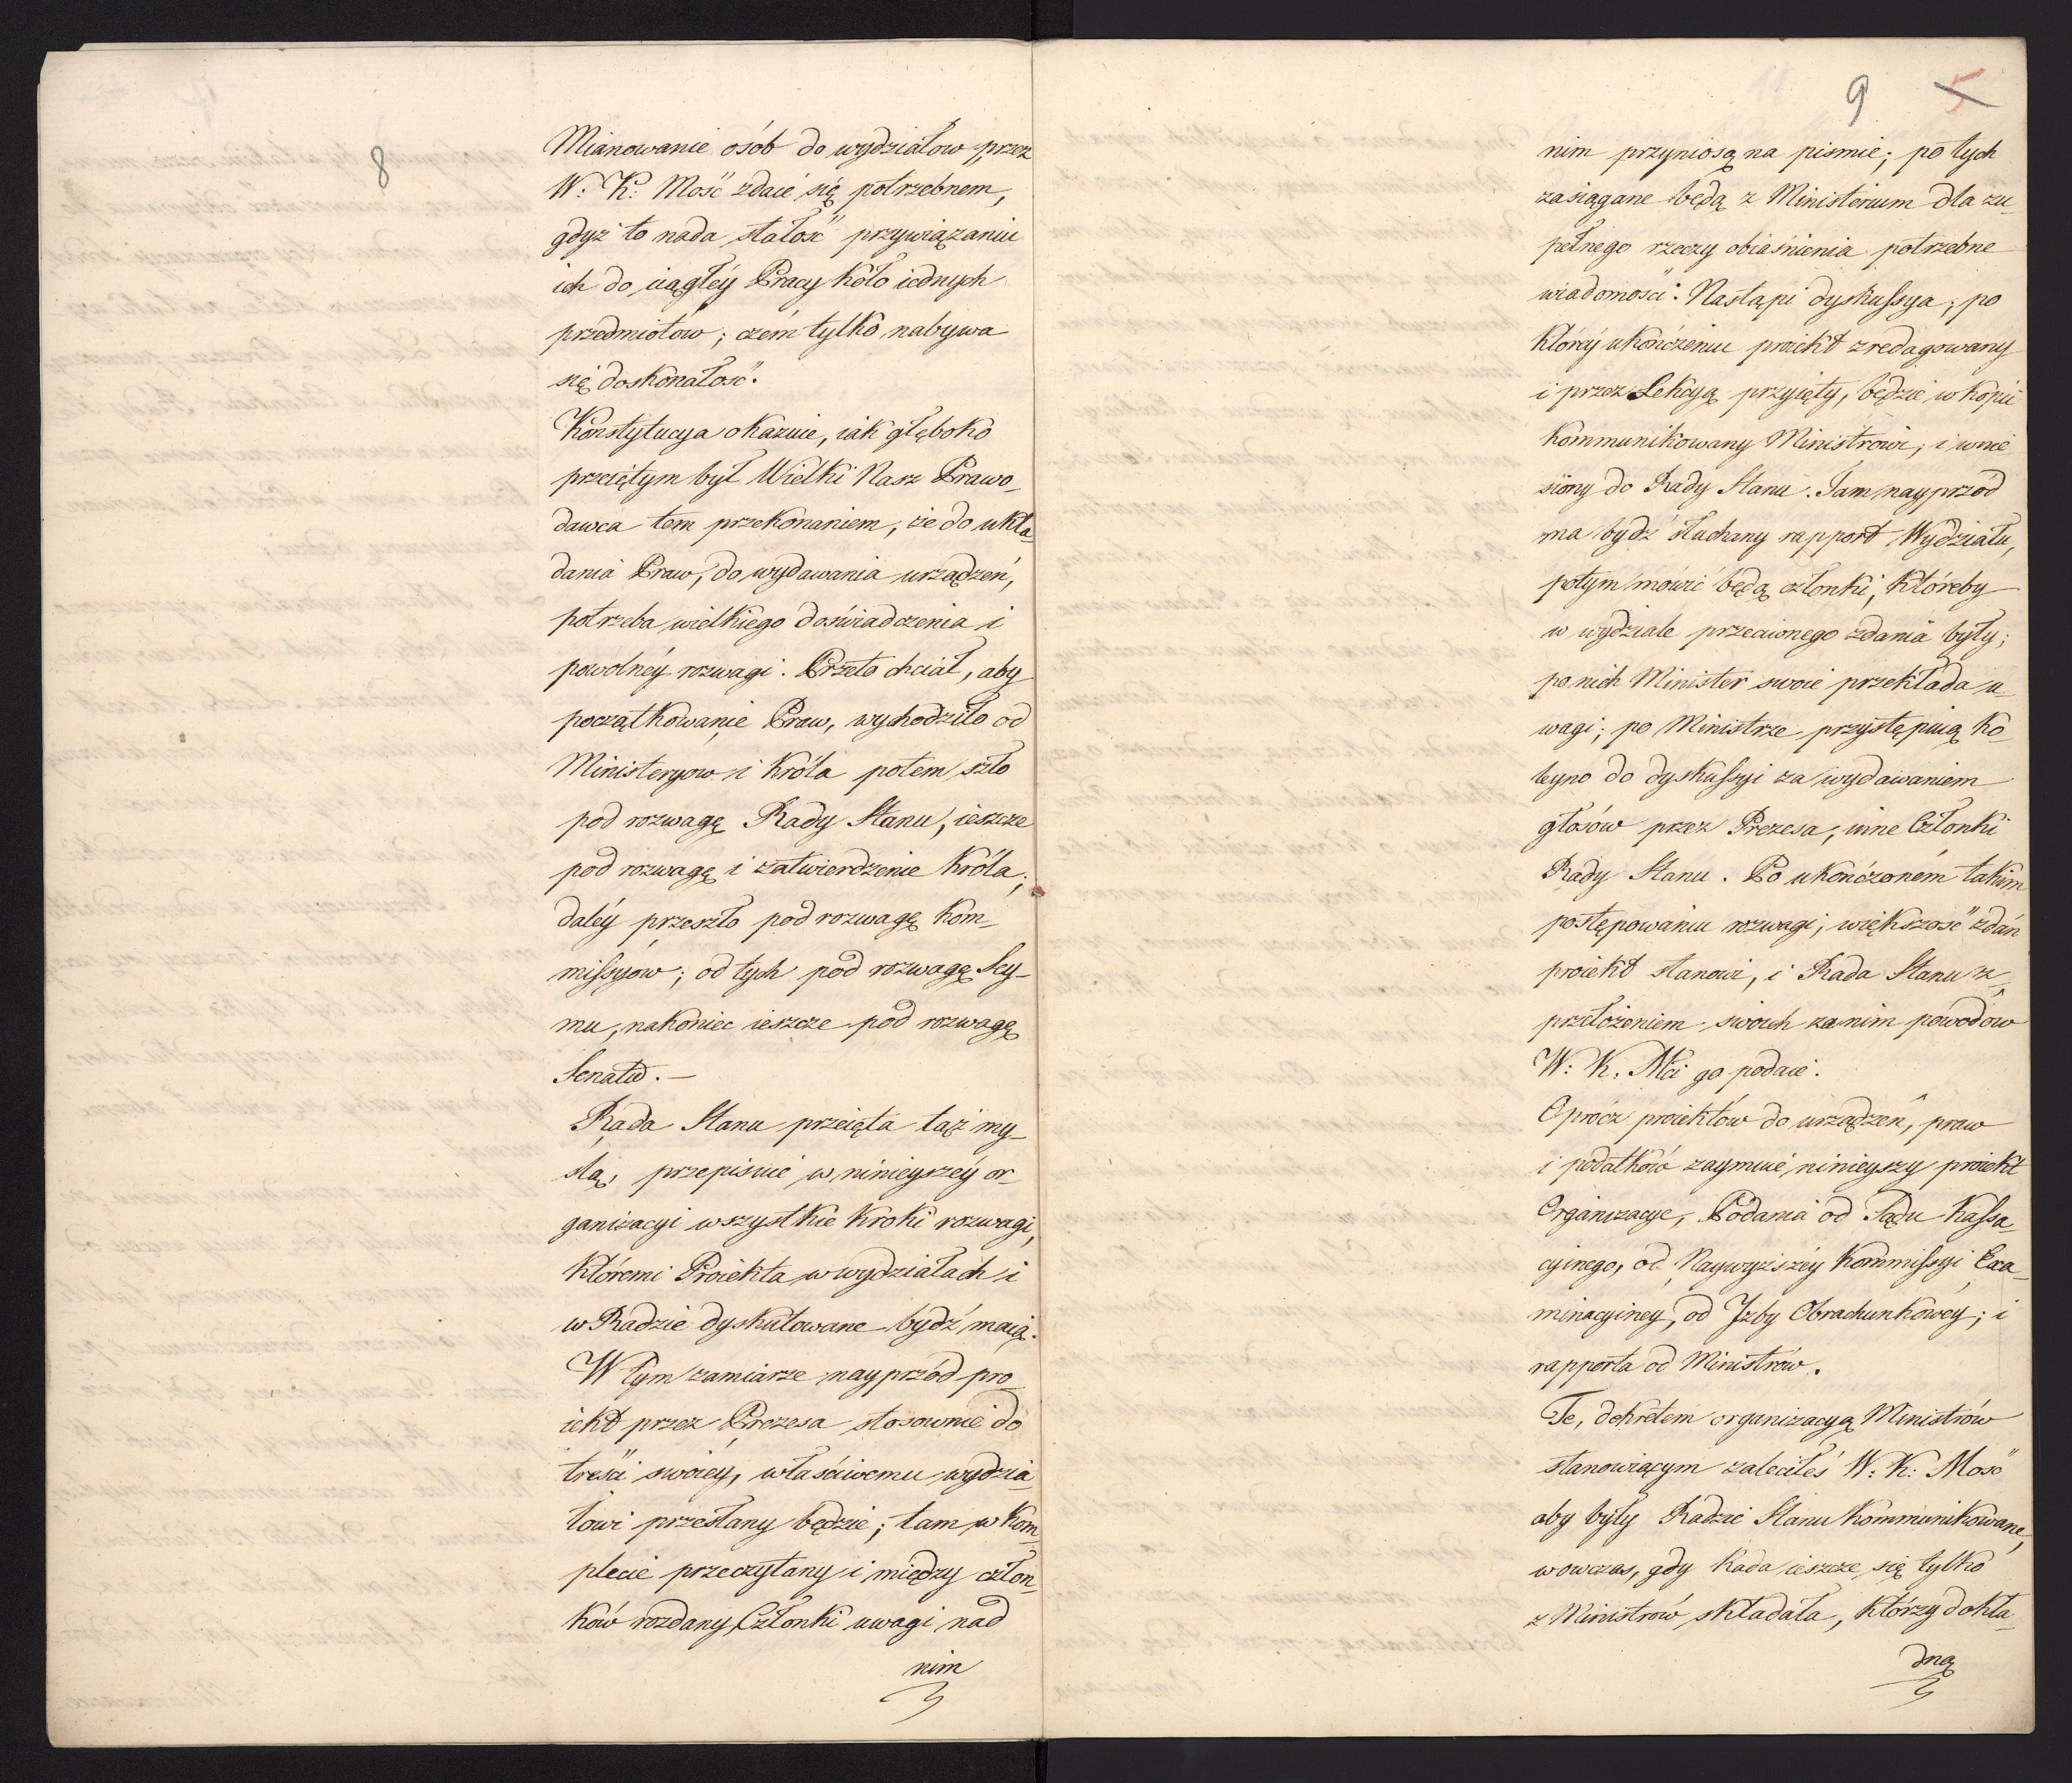 8
Mianowanie osób do wydziałow przez
W. K. Mość zdaie się potrzebnem,
gdyż to nada stałość przywiązaniu
ich do ciągłéy Pracy koło iednych
przedmiotów; czém tylko nabywa
się doskonałość.
Konstytucya okazuie, iak głęboko
przeiętym był Wielki Nasz Prawo_
dawca tem przekonaniem, że do ukła_
dania Praw, do wydawania urządzeń,
potrzeba wielkiego doświadczenia i
powolnéy rozwagi. Przeto chciał, aby
początkowanie Praw, wychodziło od
Ministeryow i Króla potem szło
pod rozwagę Rady Stanu, ieszcze
pod rozwagę i zatwierdzenie Króla;
daléy przeszło pod rozwagę kom_
missyów; od tych pod rozwagę Sey_
mu, nakoniec ieszcze pod rozwagę
Senatu. —
Rada Stanu przeięta taż my_
slą, przepisuie w ninieyszéy or_
ganizacyi wszystkie kroki rozwagi,
któremi Proiekta w wydziałach i
w Radzie dyskutowane bydź maią.
W tym zamiarze nayprzód pro_
iekt przez Prezesa stosownie do
treści swoiéy, właściwemu wydzia_
łowi przesłany będzie; tam w kom_
plecie przeczytany i między człon_
ków rozdany, Członki uwagi nad
nim
9 5
nim przyniosą na pismie; po tych
zasiągane będą z Ministerium dla zu_
pełnego rzeczy obiaśnienia potrzebne
wiadomości. Nastąpi dyskussya; po
któréy ukończeniu proiekt zredagowany
i przez Sekcyą przyięty, będzie w kopii
kommunikowany Ministrowi, i wnie
siony do Rady Stanu. Tam nayprzód
ma bydź słuchany rapport Wydziału,
potym mówić będą członki, któreby
w wydziale przeciwnego zdania były;
po nich Minister swoie przekłada u_
wagi; po Ministrze przystępuią ko_
leyno do dyskussyi za wydawaniem
głosów przez Prezesa, inne Członki
Rady Stanu. Po ukończoném takim
postępowaniu rozwagi, większość zdań
proiekt stanowi, i Rada Stanu z
przełożeniem swoich za nim powodów
W: K. Mci go podaie.
Oprócz proiektów do urządzeń, praw
i podatków zaymuie ninieyszy proiekt
Organizacye, Podania od Sądu Kassa_
cyinego, od Naywyższéy Kommissyi Exa_
minacyiney, od Izby Obrachunkowéy; i
rapporta od Ministrów.
Te, dekretem organizacyą Ministrów
stanowiącym zaleciłeś W: K: Mość
aby były Radzie Stanu kommunikowane,
wowczas, gdy Rada ieszcze się tylko
z Ministrów składała, którzy dokła_
dną